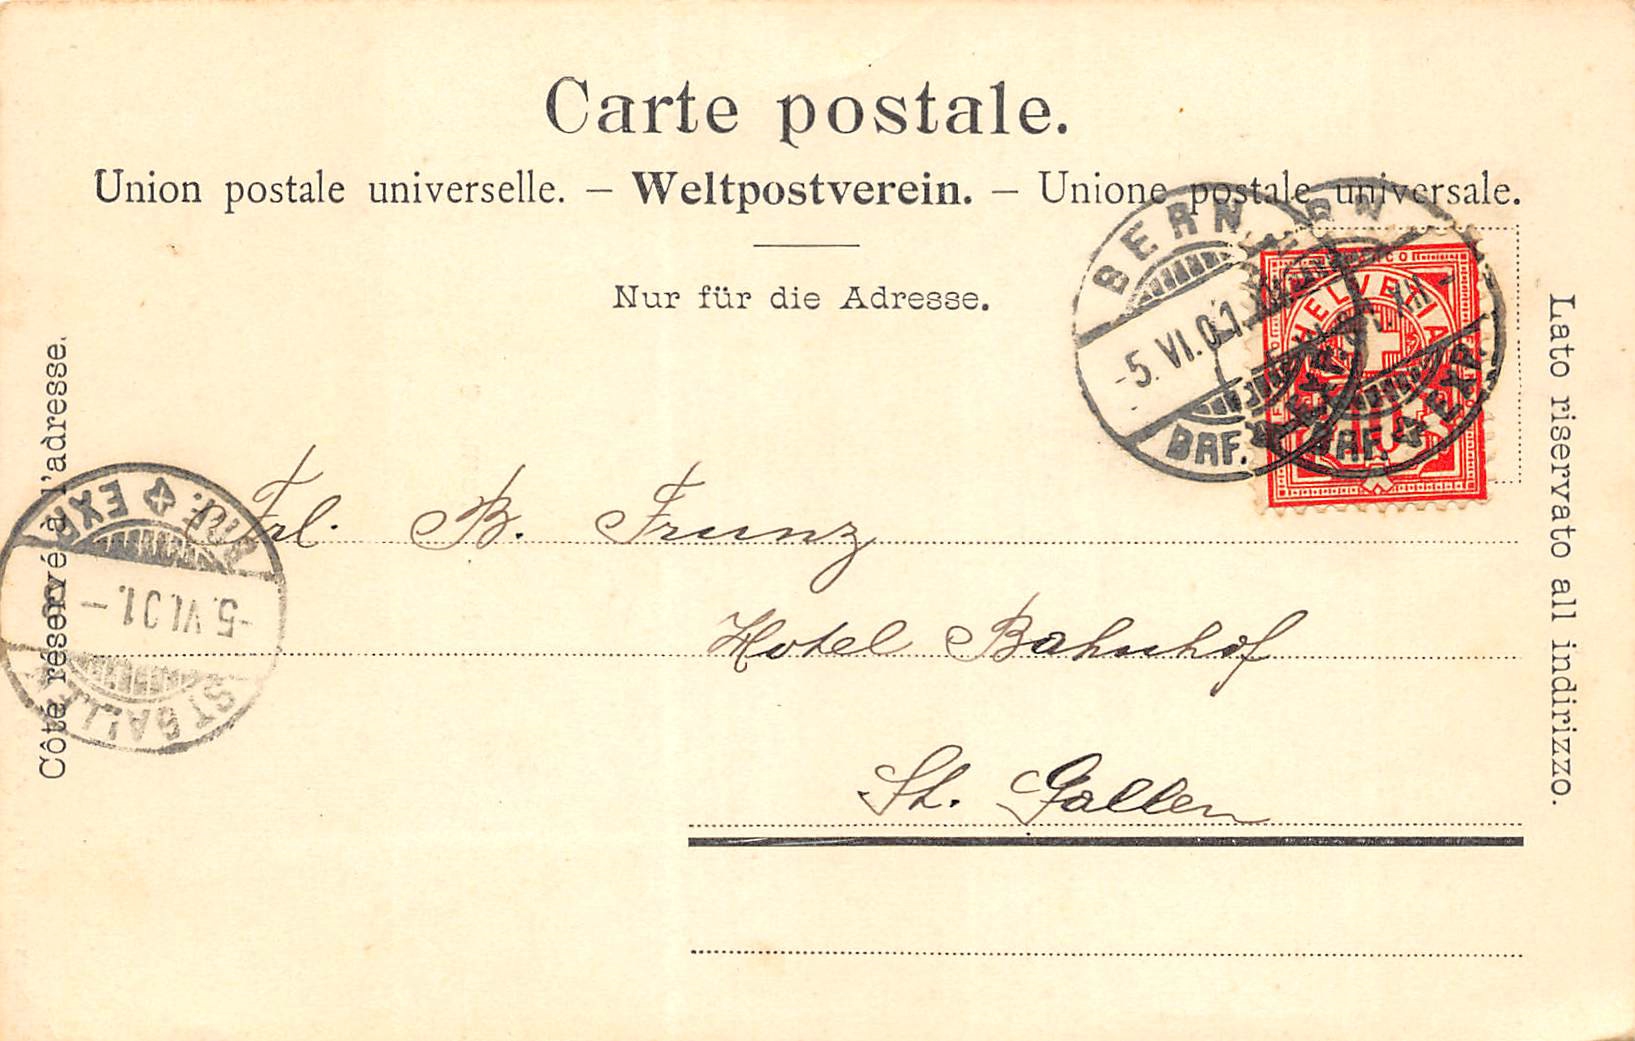 Carte postale.
Union postale universelle. – Weltpostverein. – Unione postale universale.
Nur für die Adresse.
Côté réservé à l'adresse.
Lato riservato all indirizzo.
BERN
-5. VI. 01
BRF. EXP.
BRF. EXP.
FRANCO
HELVETIA
10
BRF. EXP.
-5. VI. 01. –
ST. GALLEN
Frl. B. Frunz
Hotel Bahnhof
St. Gallen